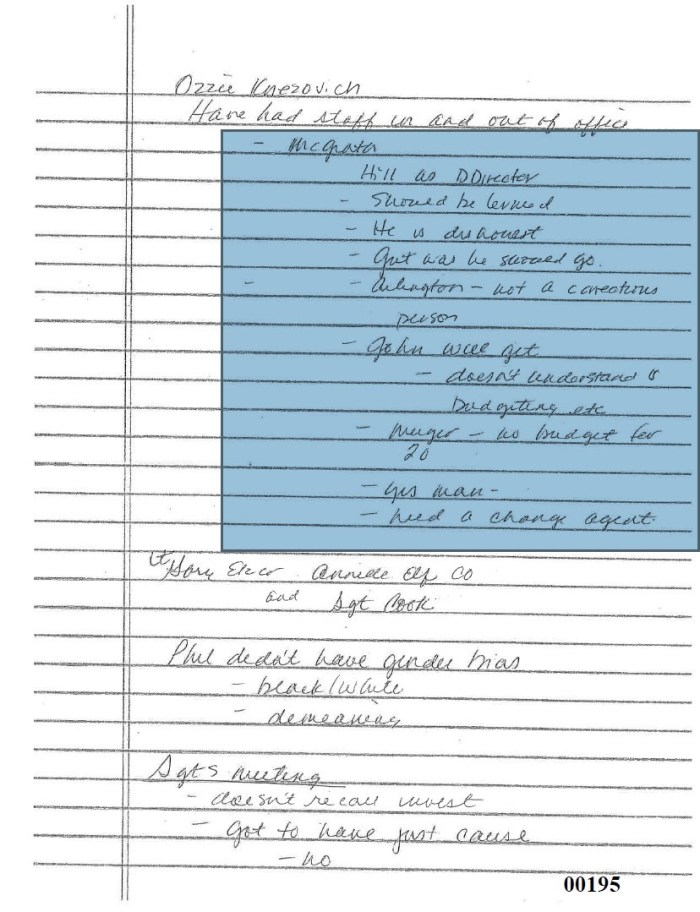 Ozzie Knezovich
Have had staff in and out of office
- McGrath
Hill as DDirector
- Should be termed
- He is dishonest
- Gut was he should go.
- - Arlington - not a corrections
person
- John will get
- doesn't understand
budgeting etc
- Merger - no budget for
20
- yes man -
- need a change agent.
Lt
and Sgt Cook
Phil didn't have gender bias
- black/white
- demeaning
Sgts meeting
- doesn't recall invest
- Got to have just cause
- no
00195